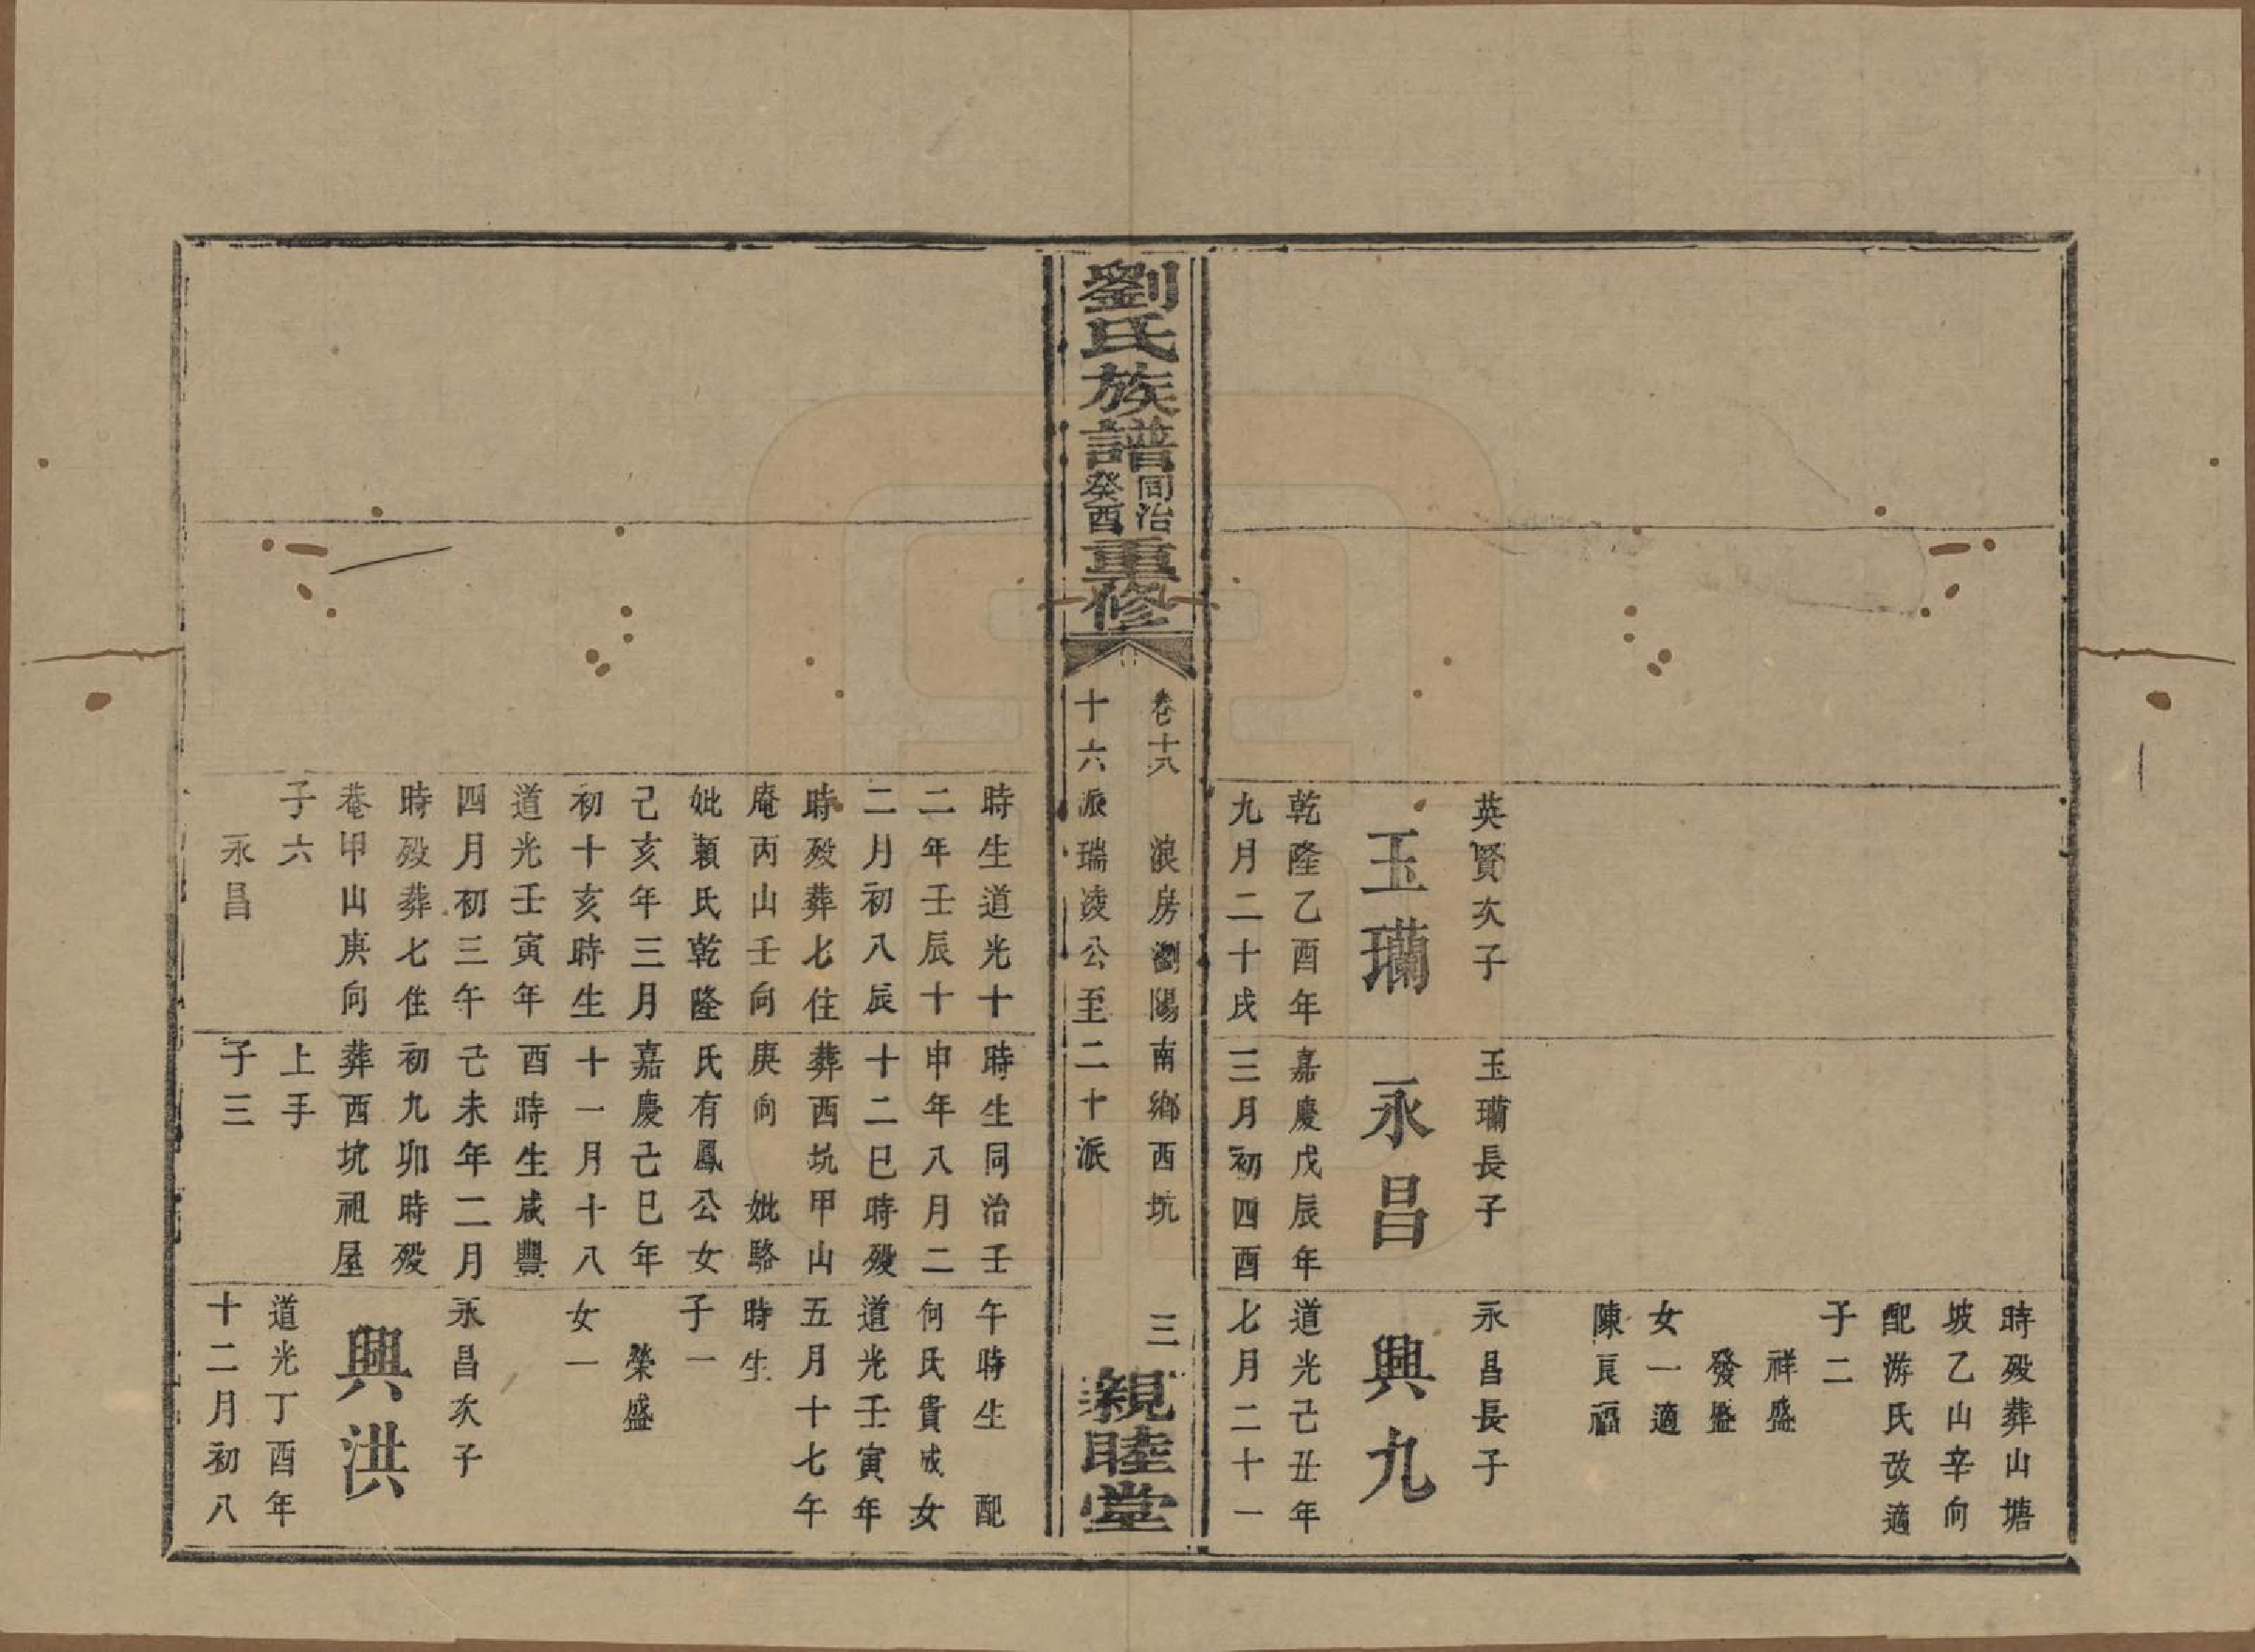 英賢次子
玉瓓
乾隆乙酉年
九月二十戌
玉瓓長子
永昌
嘉慶戊辰年
三月初四酉
時殁葬山塘
坡乙山辛向
配游氏改適
子二
祥盛
發盛
女一適
陳良福
永昌長子
興九
道光己丑年
七月二十一
劉氏族譜同治癸酉重修
卷十八 浪房瀏陽南鄉西坑 三
十六派瑞淩公至二十派
親睦堂
時生道光十
二年壬辰十
二月初八辰
時殁葬七住
庵丙山壬向
妣賴氏乾隆
己亥年三月
初十亥時生
道光壬寅年
四月初三午
時殁葬七住
菴甲山庚向
子六
永昌
時生同治壬
申年八月二
十二巳時殁
葬西坑甲山
庚向 妣駱
氏有鳳公女
嘉慶己巳年
十一月十八
酉時生咸豐
己未年二月
初九卯時殁
葬西坑祖屋
上手
子三
午時生 配
何氏貴成女
道光壬寅年
五月十七午
時生
子一
榮盛
女一
永昌次子
興洪
道光丁酉年
十二月初八